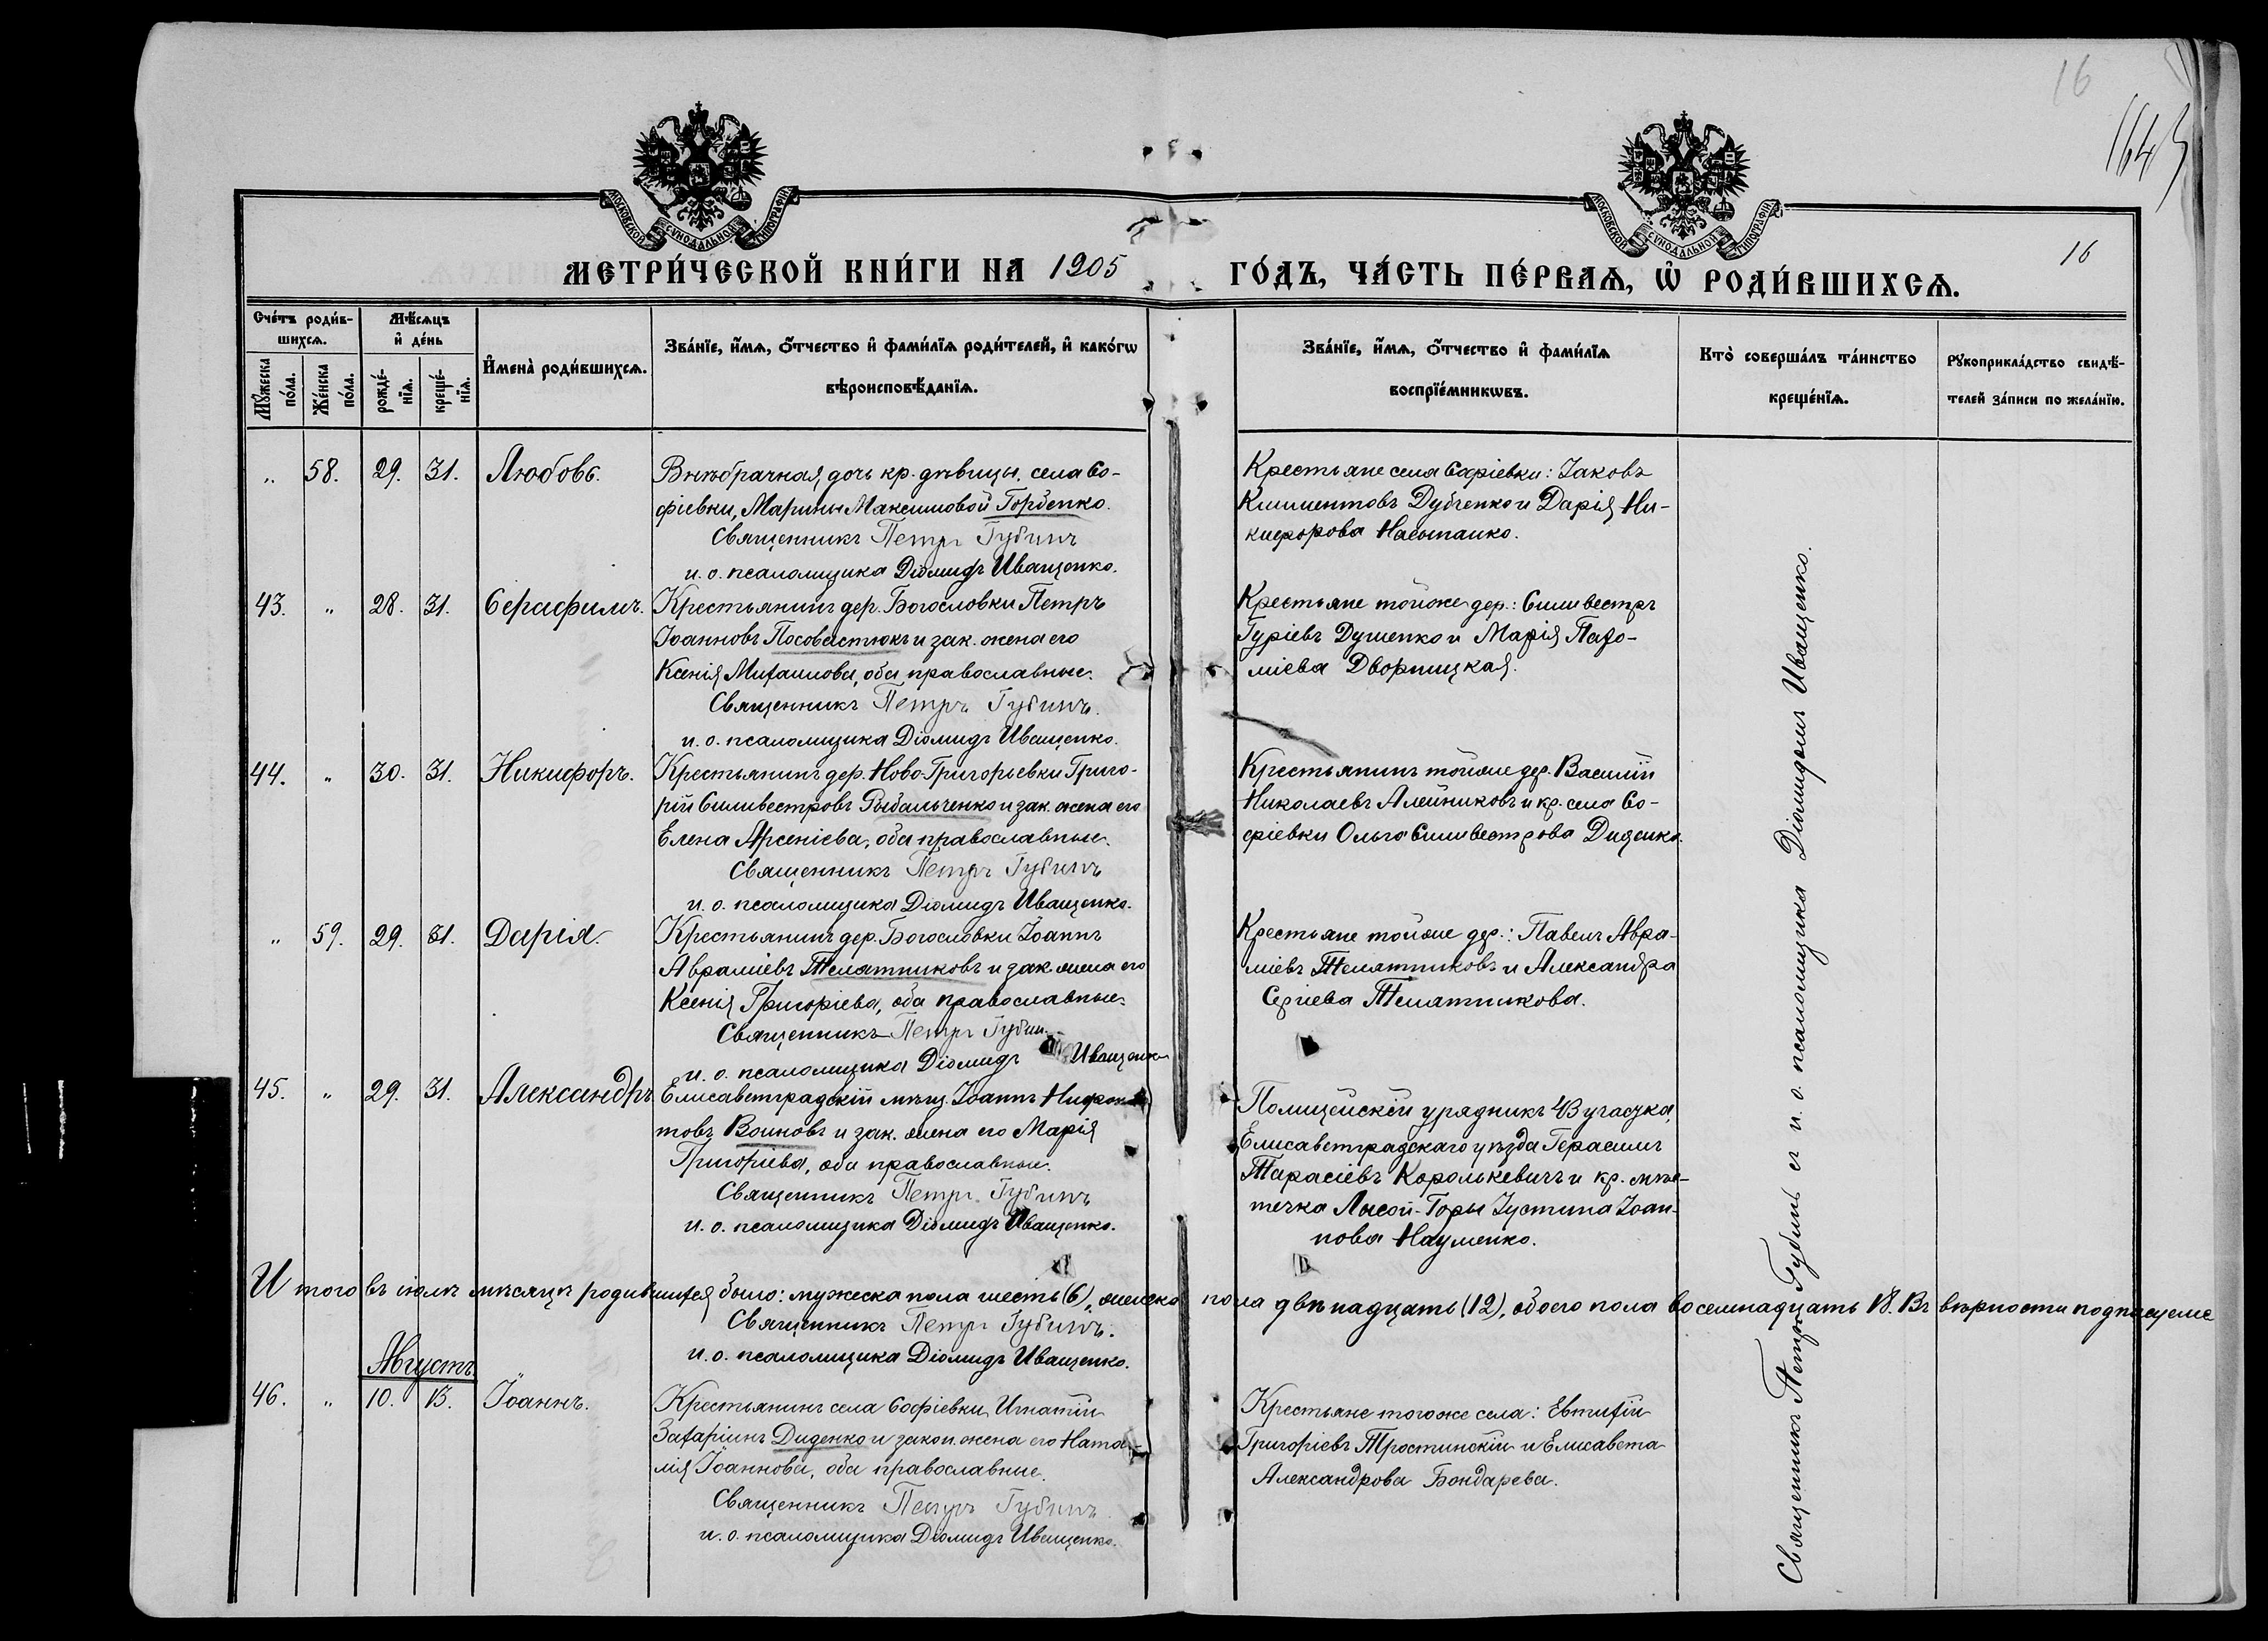 16
1643
16
МОСКОВСКОЙ СѴНОДАЛЬНОЙ ТИПОГРАФІИ
МОСКОВСКОЙ СѴНОДАЛЬНОЙ ТИПОГРАФІИ
МЕТРИ́ЧЕСКОЙ КНИ́ГИ НА 1905 ГО́ДЪ, ЧА́СТЬ ПЕ́РВАѦ, Ѡ҆ РОДИ́ВШИХСѦ.
Сче́тъ роди́в-
шихсѧ.
Мꙋ́жеска по́ла.
Же́нска по́ла.
Мѣ́сѧцъ
и҆ де́нь
рожде́-
нїѧ.
креще́-
нїѧ.
И҆мена̀ роди́вшихсѧ.
Зва́нїе, и҆́мѧ, ѻ҆́тчество и҆ фами́лїѧ роди́телей, и҆ како́гѡ
вѣроисповѣ́данїѧ.
Зва́нїе, и҆́мѧ, ѻ҆́тчество и҆ фами́лїѧ
воспрїе́мникѡвъ.
Кто̀ соверша́лъ та́инство
креще́нїѧ.
Рꙋкоприкла́дство свидѣ́-
телей за́писи по жела́нїю.
„ 58. 29. 31. Любовь.
Внѣбрачная дочь кр. дѣвицы, села Со-
фіевки, Марины Максимовой Горбенко.
Священникъ Петръ Губинъ
и. о. псаломщика Діомидъ Иващенко.
Крестьяне села Софіевки: Іаковъ
Климентовъ Дубченко и Дарія Ни-
кифорова
43. „ 28. 31. Серафимъ.
Крестьянинъ дер. Богословки Петръ
Іоанновъ Посовистюкъ и зак. жена его
Ксенія Михаилова, оба православные.
Священникъ Петръ Губинъ.
и. о. псаломщика Діомидъ Иващенко.
Крестьяне тойже дер.: Силивестръ
Гуріевъ Душенко и Марія Пахо-
міева Дворницкая.
44. „ 30. 31. Никифоръ.
Крестьянинъ дер. Ново-Григорьевки Григо-
рій Силивестровъ Рыбальченко и зак. жена его
Елена Арсеніева, оба православные.
Священникъ Петръ Губинъ
и. о. псаломщика Діомидъ Иващенко.
Крестьянинъ тойже дер. Василій
Николаевъ Алейниковъ и кр. села Со-
фіевки Ольга Силивестрова Диденко.
„ 59. 29. 31. Дарія.
Крестьянинъ дер. Богословки Іоаннъ
Авраміевъ Телятниковъ и зак. жена его
Ксенія Григоріева, оба православные.
Священникъ Петръ Губин
и. о. псаломщика Діомидъ Иващенко
Крестьяне тойже дер.: Павелъ Авра-
міевъ Телятниковъ и Александра
Сергіева Телятникова.
45. „ 29. 31. Александръ
Елисаветградскій мѣщ. Іоаннъ Нифон-
товъ Воиновъ и зак. жена его Марія
Григоріева, оба православные.
Священникъ Петръ Губинъ
и. о. псаломщика Діомидъ Иващенко.
Полицейскій урядникъ 43 участка,
Елисаветградскаго уѣзда Герасимъ
Тарасіевъ Королькевичъ и кр. мѣс-
течка Лысой-Горы Іустина Іоан-
нова Науменко.
Итого въ іюлѣ мѣсяцѣ родившихся было: мужеска пола шесть (6), женска пола двѣнадцать (12), обоего пола восемнадцать 18. Въ вѣрности подписуеме
Священникъ Петръ Губинъ.
и. о. псаломщика Діомидъ Иващенко.
Августъ.
46. „ 10. 13. Іоаннъ.
Крестьянинъ села Софіевки, Игнатій
Захаріинъ Диденко и закон. жена его Ната-
лія Іоаннова, оба православные.
Священникъ Петръ Губинъ.
и. о. псаломщика Діомидъ Иващенко.
Крестьяне тогоже села: Евтихій
Григоріевъ Тростинскій и Елисавета
Александрова Бондарева.
Священникъ Петръ Губинъ съ и. о. псаломщика Діомидомъ Иващенко.